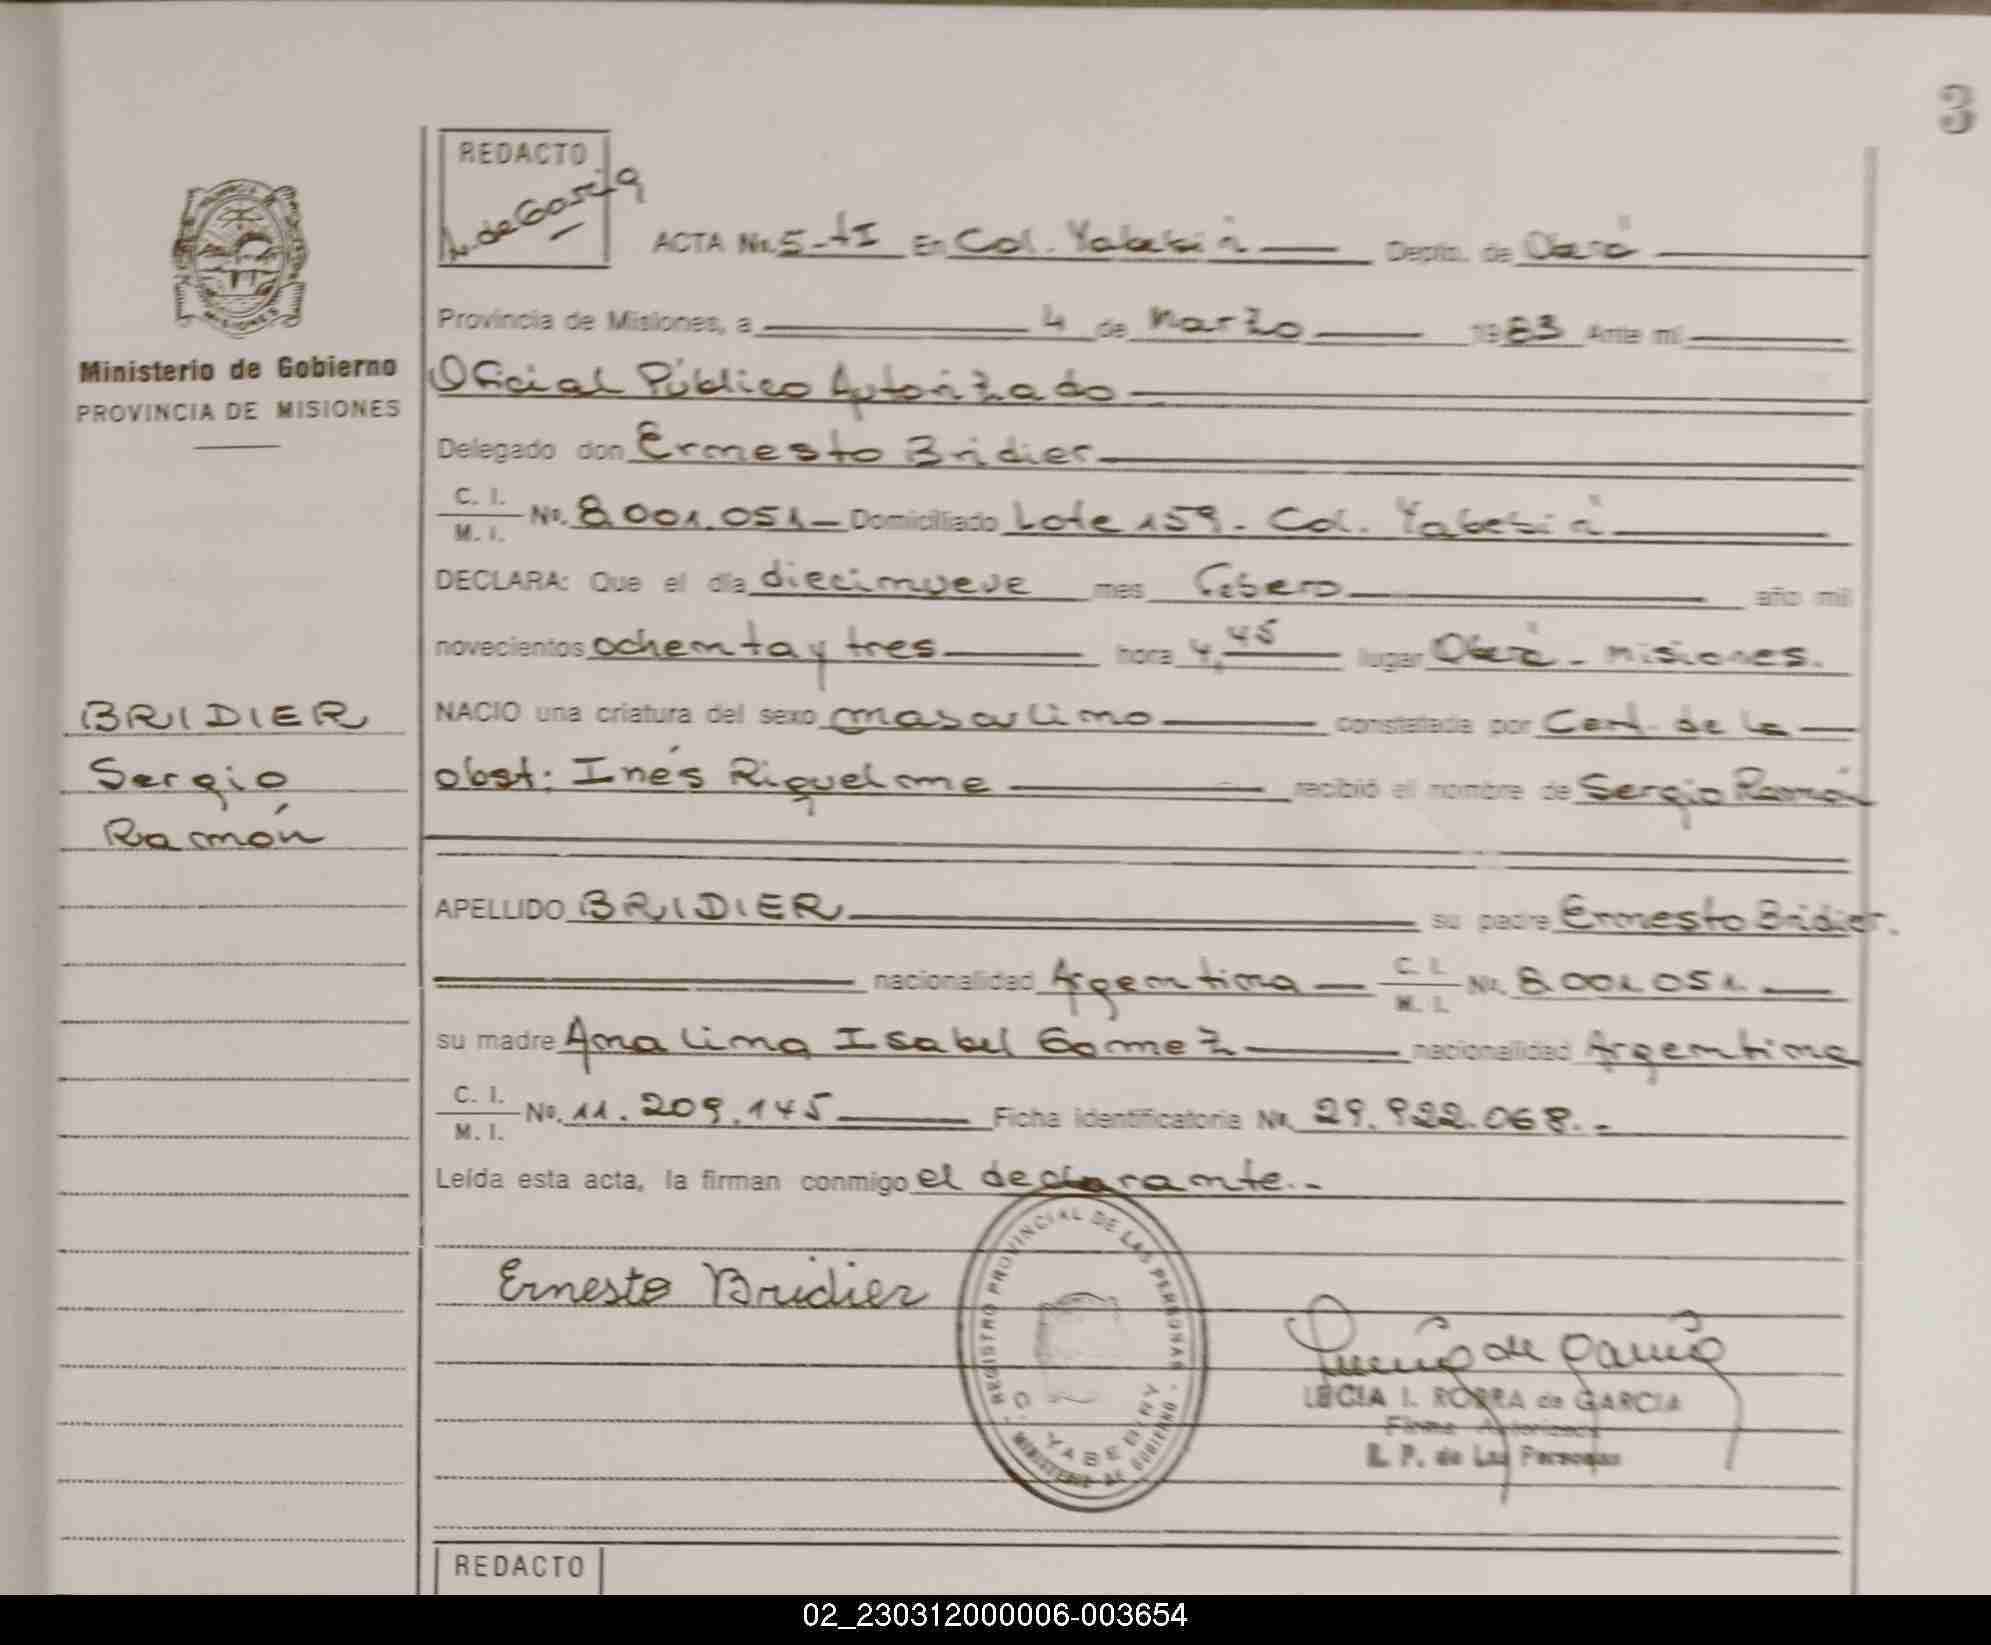 3
REDACTO
L. de Garcia
ACTA No. 5-tI En Col. Yabebirí Depto. de Oberá
Provincia de Misiones, a 4 de Marzo 1983 Ante mi
Oficial Público Autorizado
Delegado don Ernesto Bridier
C. I.
M. I.
No. 8.001.051 Domiciliado Lote 159 - Col. Yabebirí
DECLARA: Que el día diecinueve mes Febero año mil
novecientos ochenta y tres hora 4,45 lugar Oberá - Misiones.
NACIO una criatura del sexo masculino constatada por Cert. de la
obst: Inés Riquelme recibió el nombre de Sergio Ramón
APELLIDO BRIDIER su padre Ernesto Bridier.
nacionalidad Argentina C. I. M. I. No. 8.001.051.
su madre Analina Isabel Gomez nacionalidad Argentina
C. I.
M. I.
No. 11.209.145 Ficha identificatoria No. 29.922.068.-
Leída esta acta, la firman conmigo el declarante.-
Ernesto Bridier
REGISTRO PROVINCIAL DE LAS PERSONAS
MINISTERIO DE GOBIERNO
Lucia de Garcia
LUCIA I. de GARCIA
Firma Autorizada
R. P. de Las Personas
REDACTO
PROVINCIA
MISIONES
Ministerio de Gobierno
PROVINCIA DE MISIONES
BRIDIER
Sergio
Ramón
02_230312000006-003654